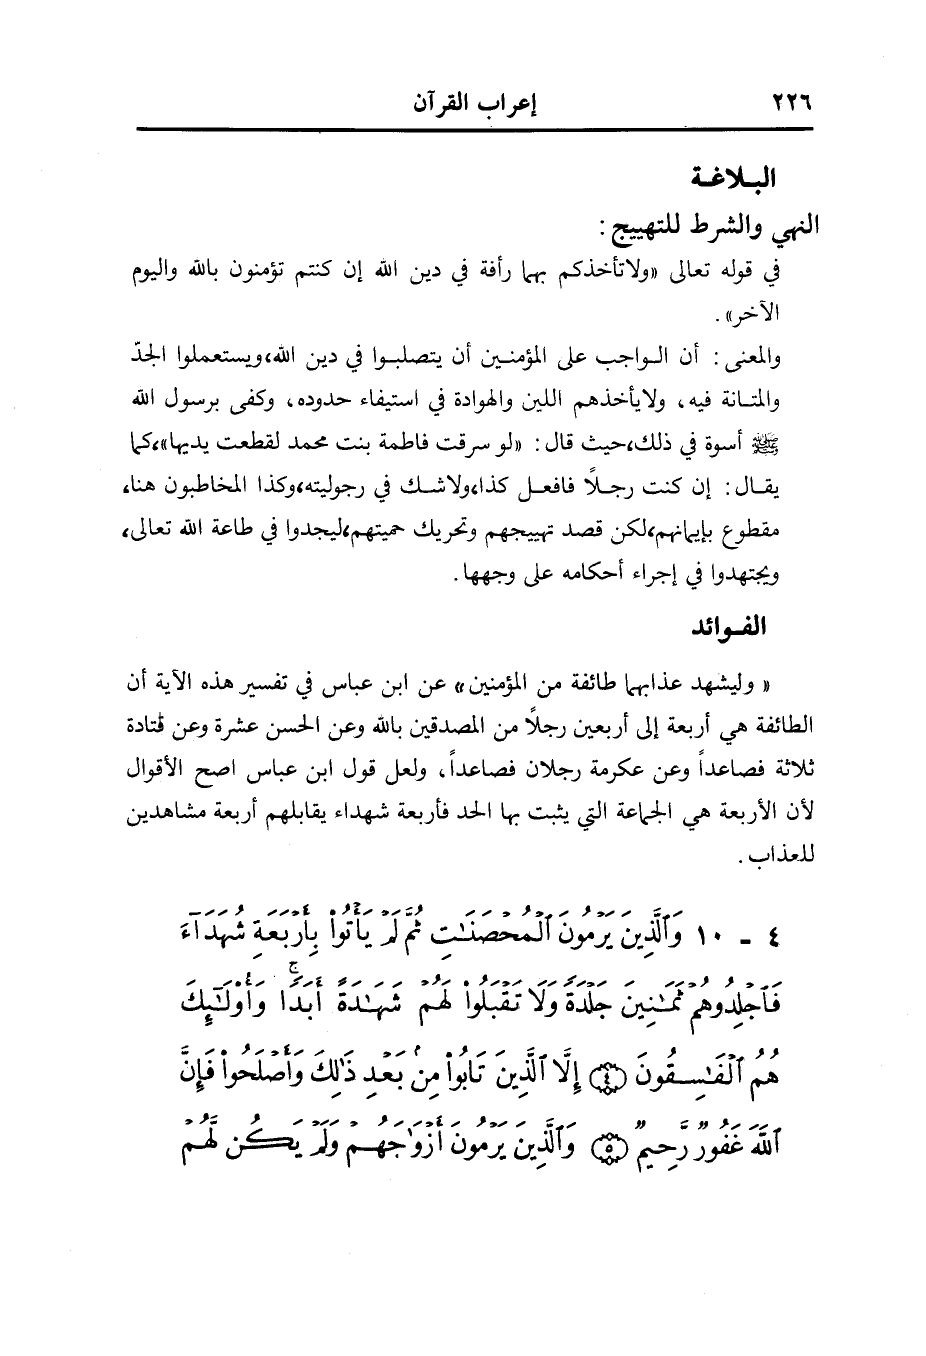 ٢٢٦ إعراب القرآن
البلاغة
النهي والشرط للتهييج :
في قوله تعالى «ولاتأخذكم بهما رأفة في دين الله إن كنتم تؤمنون بالله واليوم
الآخر» .
والمعنى : أن الواجب على المؤمنين أن يتصلبوا في دين الله،ويستعملوا الجدّ
والمتانة فيه، ولايأخذهم اللين والهوادة في استيفاء حدوده، وكفى برسول الله
ﷺ أسوة في ذلك،حيث قال : «لو سرقت فاطمة بنت محمد لقطعت يديها»،كما
يقال : إن كنت رجلاً فافعل كذا،ولاشك في رجوليته،وكذا المخاطبون هنا،
مقطوع بإيمانهم،لكن قصد تهييجهم وتحريك حميتهم،ليجدوا في طاعة الله تعالى،
ويجتهدوا في إجراء أحكامه على وجهها .
الفوائد
« وليشهد عذابهما طائفة من المؤمنين» عن ابن عباس في تفسير هذه الآية أن
الطائفة هي أربعة إلى أربعين رجلاً من المصدقين بالله وعن الحسن عشرة وعن قتادة
ثلاثة فصاعداً وعن عكرمة رجلان فصاعداً، ولعل قول ابن عباس اصح الأقوال
لأن الأربعة هي الجماعة التي يثبت بها الحد فأربعة شهداء يقابلهم أربعة مشاهدين
للعذاب .
٤ - ١٠ وَٱلَّذِينَ يَرْمُونَ ٱلْمُحْصَنَٰتِ ثُمَّ لَمْ يَأْتُوا۟ بِأَرْبَعَةِ شُهَدَآءَ
فَٱجْلِدُوهُمْ ثَمَٰنِينَ جَلْدَةً وَلَا تَقْبَلُوا۟ لَهُمْ شَهَٰدَةً أَبَدًا ۚ وَأُو۟لَٰٓئِكَ
هُمُ ٱلْفَٰسِقُونَ ﴿٤﴾ إِلَّا ٱلَّذِينَ تَابُوا۟ مِنۢ بَعْدِ ذَٰلِكَ وَأَصْلَحُوا۟ فَإِنَّ
ٱللَّهَ غَفُورٌ رَّحِيمٌ ﴿٥﴾ وَٱلَّذِينَ يَرْمُونَ أَزْوَٰجَهُمْ وَلَمْ يَكُن لَّهُمْ